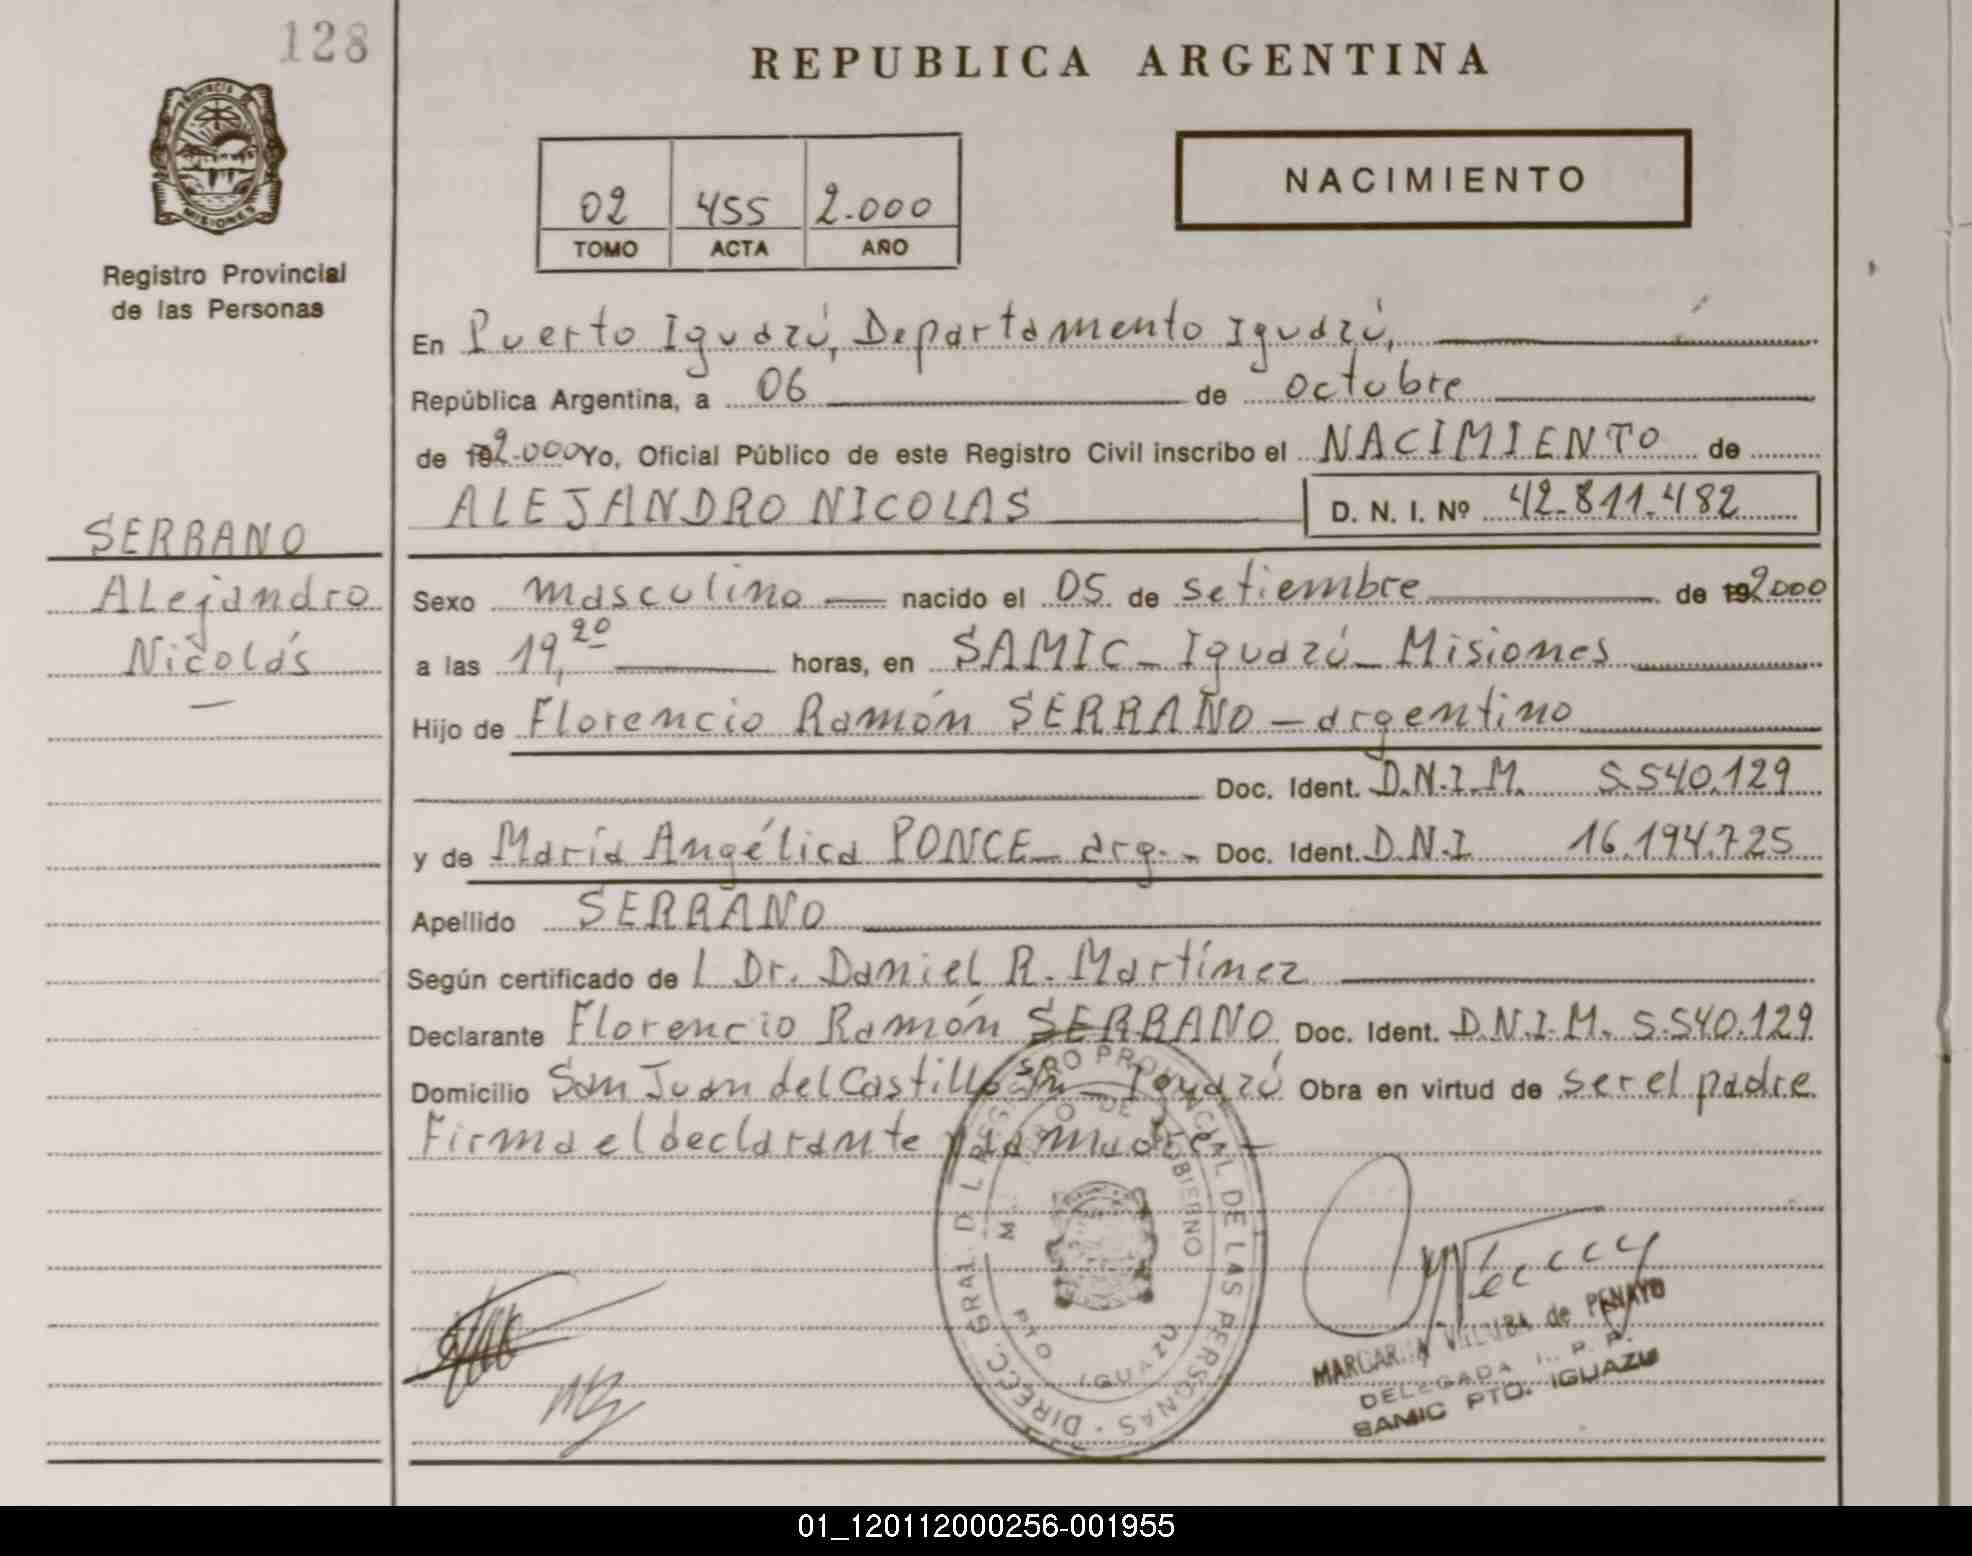 128
REPUBLICA ARGENTINA
PROVINCIA DE
MISIONES
Registro Provincial
de las Personas
02 455 2.000
TOMO ACTA AÑO
NACIMIENTO
En Puerto Iguazú, Departamento Iguazú,
República Argentina, a 06 de octubre
de 192.000 Yo, Oficial Público de este Registro Civil inscribo el NACIMIENTO de
ALEJANDRO NICOLAS D. N. I. Nº 42.811.482
SERRANO
Alejandro
Nicolás
Sexo masculino nacido el 05 de setiembre de 192000
a las 19,20 horas, en SAMIC - Iguazú - Misiones
Hijo de Florencio Ramón SERRANO - argentino
Doc. Ident. D.N.I.M. 5.540.129
y de María Angélica PONCE - arg. - Doc. Ident. D.N.I 16.194.725
Apellido SERRANO
Según certificado de l Dr. Daniel R. Martínez
Declarante Florencio Ramón SERRANO Doc. Ident. D.N.I.M. 5.540.129
Domicilio San Juan del Castillo S/n - Iguazú Obra en virtud de ser el padre
Firma el declarante y la madre. -
DIRECC. GRAL. DEL REGISTRO PROVINCIAL DE LAS PERSONAS
DE GOBIERNO
PTO IGUAZU
MARGARITA VILLALBA de PENAYO
DELEGADA R. P. P.
SAMIC PTO. IGUAZU
01_120112000256-001955